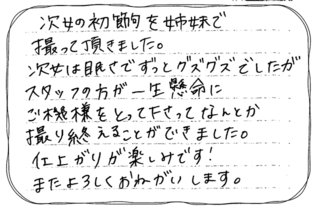 次女の初節句を姉妹で
撮って頂きました。
次女は眠さでずっとグズグズでしたが
スタッフの方が一生懸命に
ご機様をとって下さってなんとか
撮り終えることができました。
仕上がりが楽しみです!
またよろしくおねがいします。